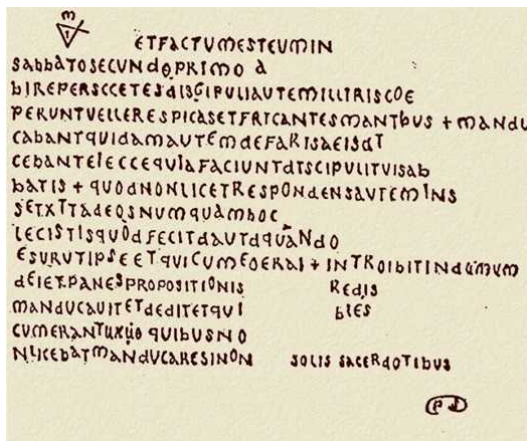 ETFACTUMESTEUMIN
SABBATOSECUNDOPRIMO A
BIREPERSCCETESDISGIPULIAUTEMILLIRISCOE
PERUNTVELLERESPICASETFRICANTESMANTBUS + MANDU
CABANTQUIDAMAUTEMDEFARISAEISDT
CEBANTELECCEQUIAFACIUNTDTSCIPULITUISAB
BATIS + QUODNONLICETRESPONDENSAUTEMINS
SETXTTADEOSNUMQUAMBOC
LECISTISQUODFECITDAUTDQUANDO
ESURUTIPSEETQUICUMEOERAI + INTROIBITINDUMUM
DEIETPANESPROPOSITIONIS REDIS
MANDUCAUITETDEDITETQUI BLES
CUMERANTUXUO QUIBUSNO
NLICEBATMANDUCARESINON SOLIS SACERDOTIBUS